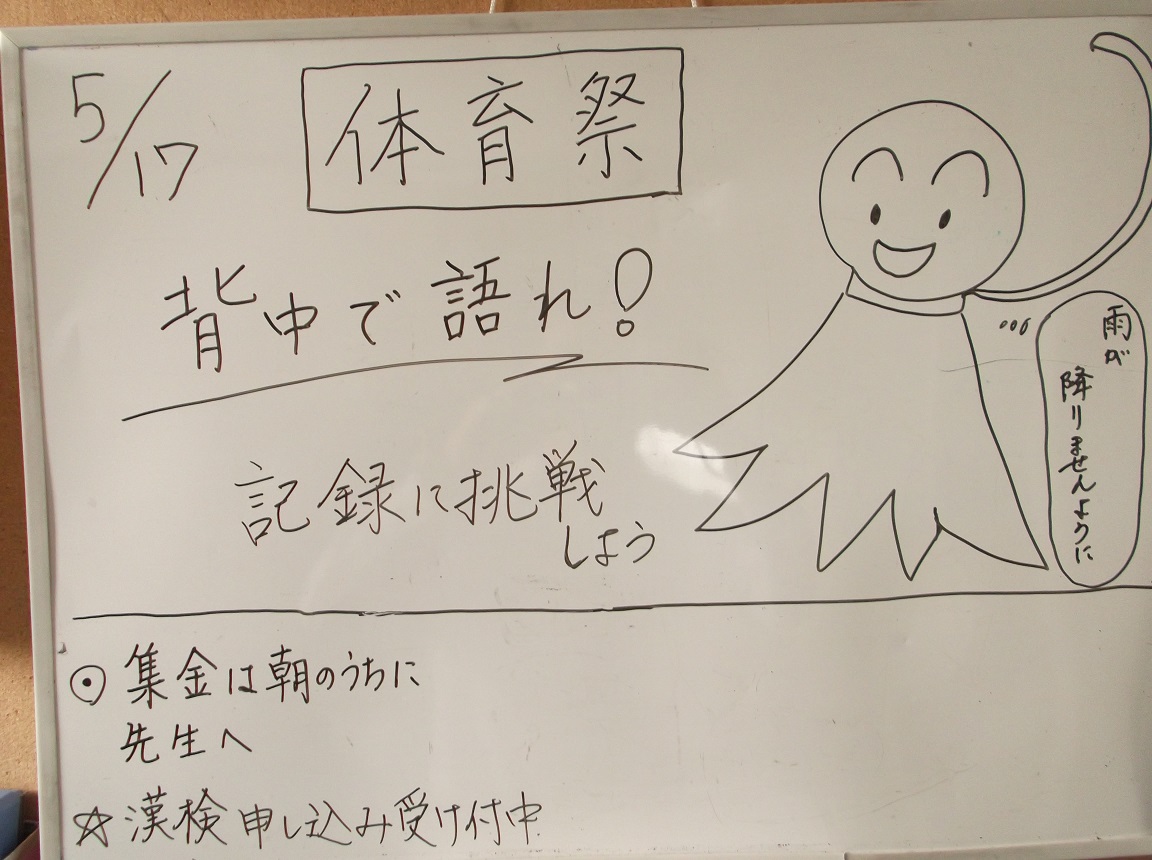 5/17
体育祭
背中で語れ!
記録に挑戦
しよう
雨が
降りませんように
集金は朝のうちに
先生へ
☆漢検申し込み受け付中